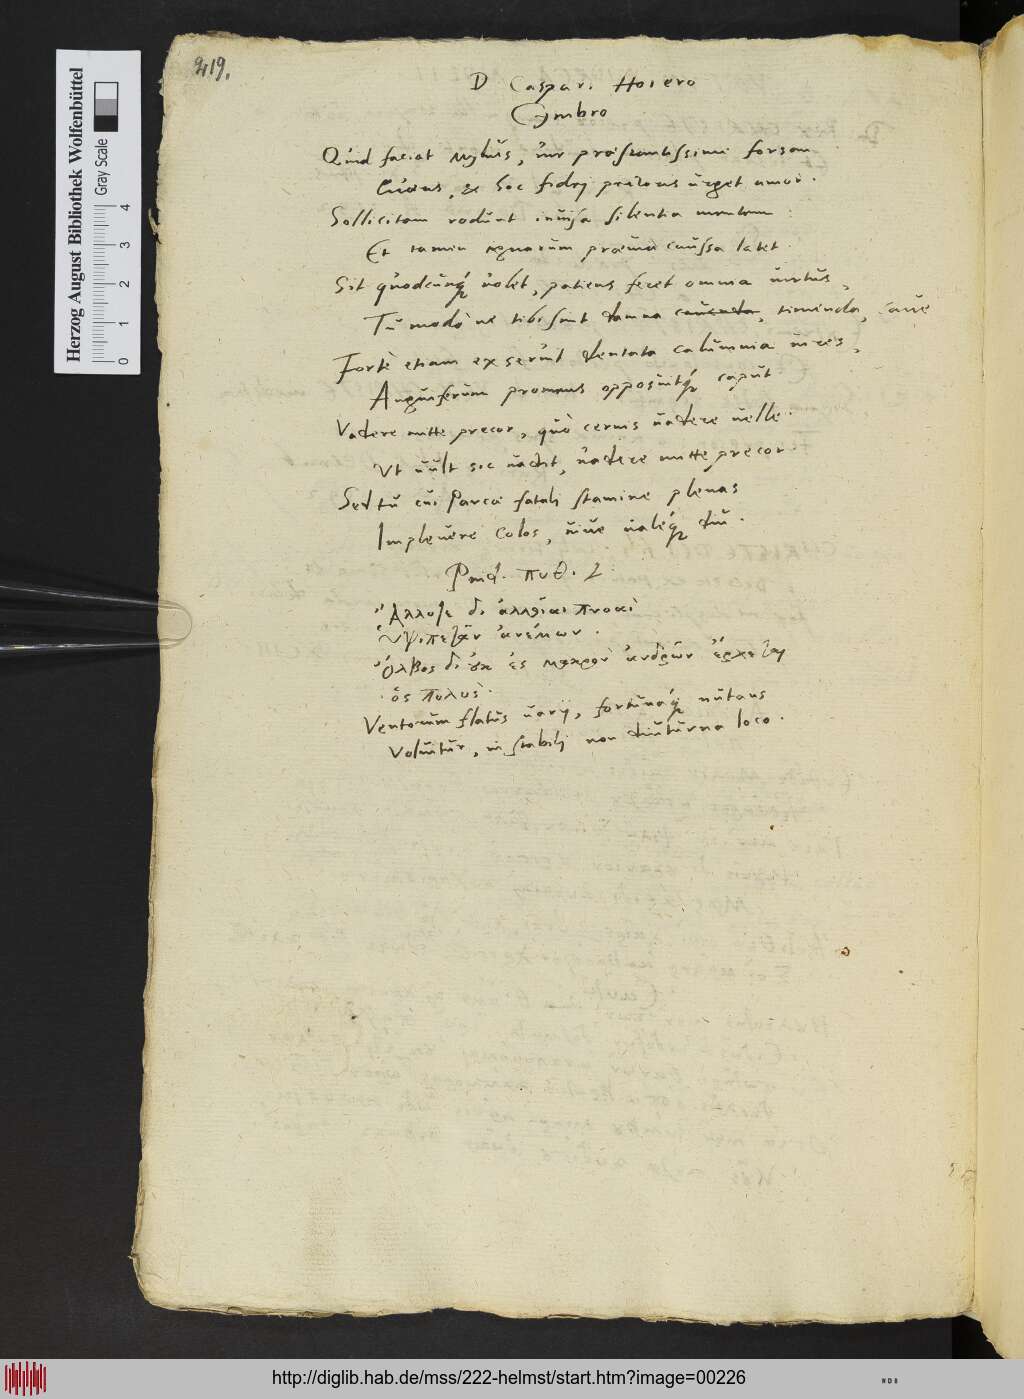 219.
D Caspari Hoiero
Cymbro
Quid faciat Mylius, vir præstantissime forsan
et hoc fidei urget amor.
Sollicitam rodunt invisa silentia mentem:
Et tamen caussa latet.
Sit quodcunq́ volet, patiens feret omnia virtus,
Tu modò ne tibi sint damna timenda, cave
Fortè etiam exserint dentata calumnia vires,
Anguiferum promens opponitq́ caput.
Vadere mitte precor, quò cernis vadere velle.
Ut vult sic vadit, vadere mitte precor.
Sed tu cui Parcæ fatali stamine plenas
Implevere colos, vive valeq́ diu.
Pind. πυθ.
Ἄλλοτε δ' ἀλλοῖαι πνοαὶ
Ὑψιπετᾶν ἀνέμων.
Ὄλβος δ' οὐκ ἐς μακρὸν ἀνδρῶν ἔρχεται
ὃς πολὺς.
Ventorum flatus varii, fortunaq́ nutans
Volvitur, in stabili non diuturna loco.
Herzog August Bibliothek Wolfenbüttel
Gray Scale
0 1 2 3 4
http://diglib.hab.de/mss/222-helmst/start.htm?image=00226